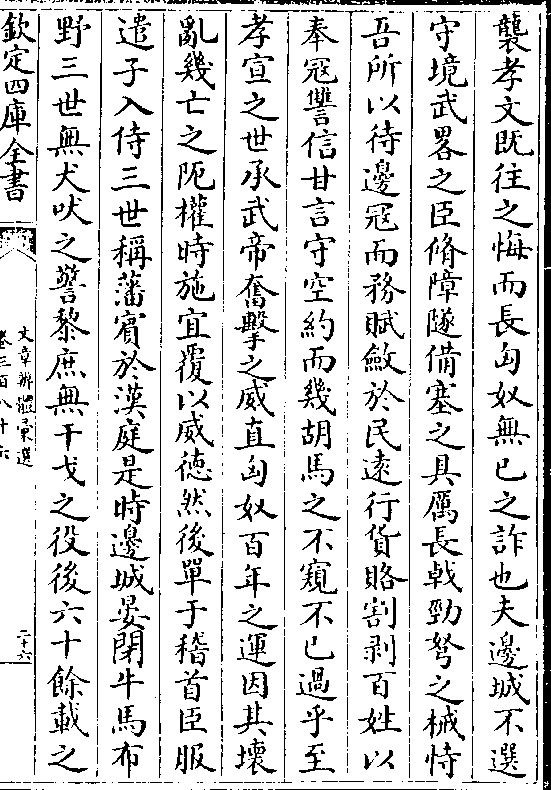 襲孝文既往之悔而長匈奴無已之詐也夫邊城不選
守境武畧之臣脩障隧備塞之具厲長戟勁弩之械恃
吾所以待邊冦而務賦斂於民逺行貨賂割剥百姓以
奉冦讐信甘言守空約而幾胡馬之不窺不已過乎至
孝宣之世承武帝奮擊之威直匈奴百年之運因其壞
亂幾亡之阨權時施宜覆以威徳然後單于稽首臣服
遣子入侍三世稱藩賓於漢庭是時邊城晏閉牛馬布
野三世無犬吠之警黎庶無干戈之役後六十餘載之
欽定四庫全書
文章辨體彚選
卷三百八十六
二十六